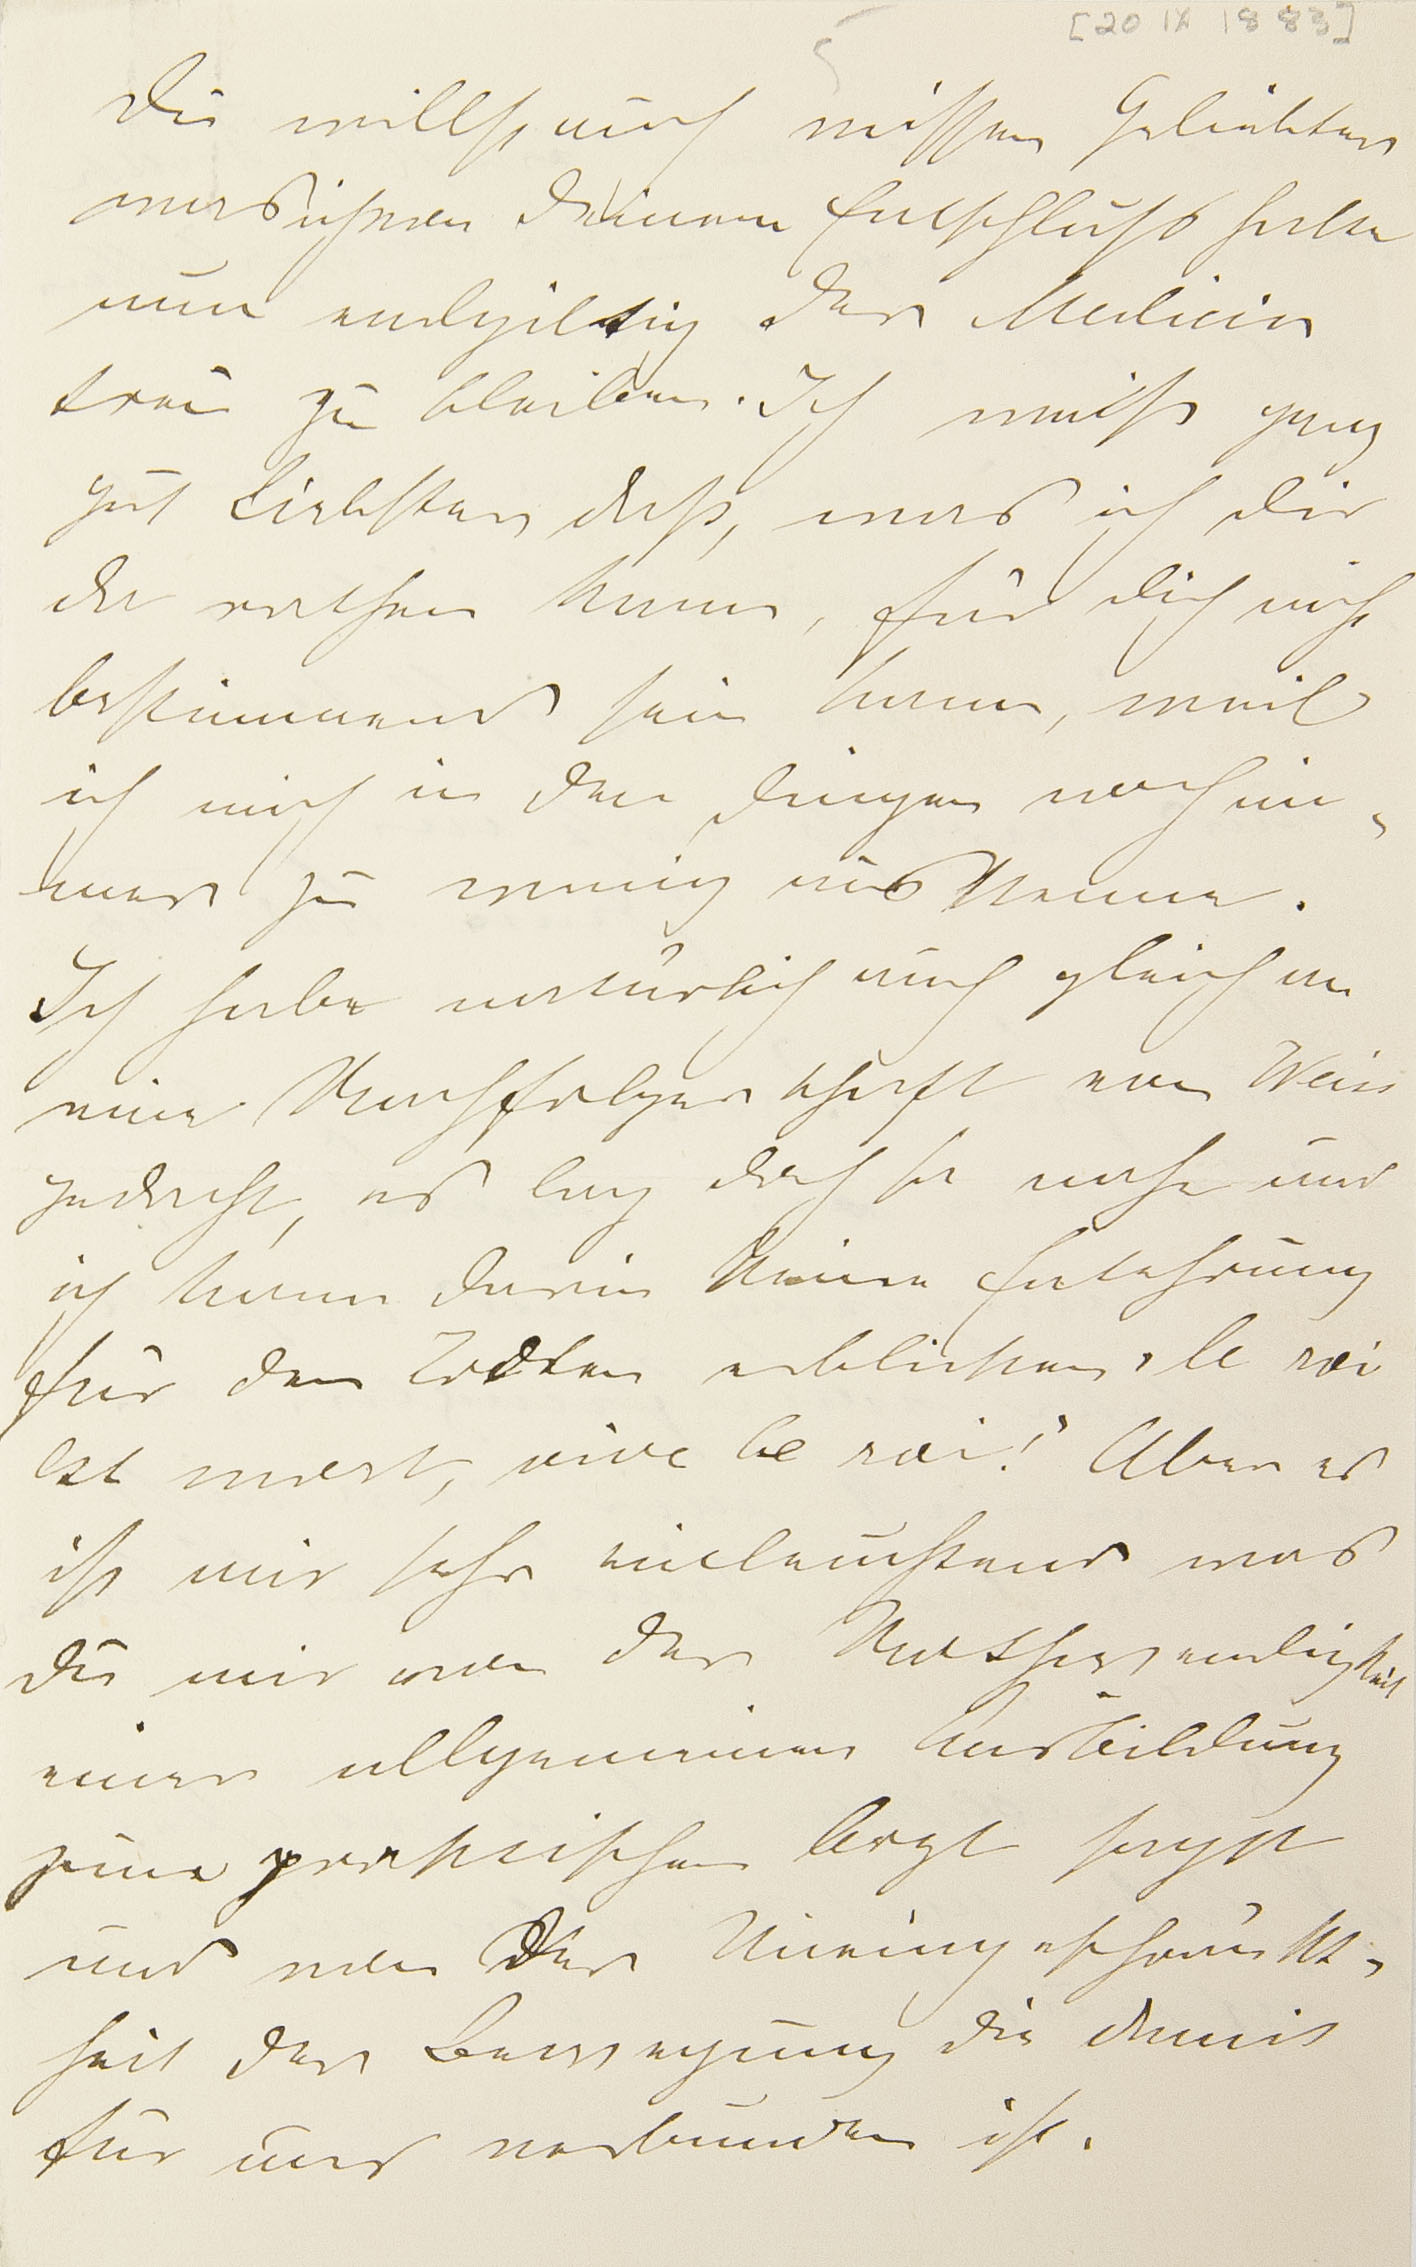 [20 IX 1883]
Du willst auch wissen Geliebter
was ich von Deinem Entschluß halte
nun endgiltig der Medicin
treu zu bleiben. Ich weiß ganz
gut Liebster daß, was ich Dir
da rathen kann, für Dich nicht
bestimmend sein kann, weil
ich mich in den Dingen noch im-
mer zu wenig auskenne.
Ich habe natürlich auch gleich an
eine Nachfolgerschaft von Weiss
gedacht, es lag doch so nahe und
ich kann darin keine Entehrung
für den Todten erblicken. le roi
est mort, vive le roi! Aber es
ist mir sehr einleuchtend was
Du mir von der Nothwendigkeit
einer allgemeinen Ausbildung
zum praktischen Arzt sagst
und von der Uneingeschränkt-
heit der Bewegung die damit
für uns verbunden ist.